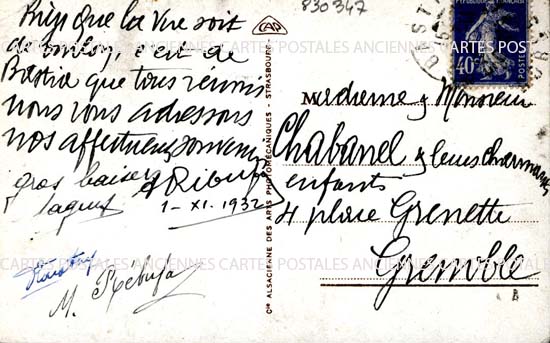 Bien que la vue soit
de
c'est de
Bastia que tous réunis
nous vous adressons
nos affectueux souvenirs
gros baisers
Jaques
1-XI.1932
M. Rebuffa
CAP
Cie ALSACIENNE DES ARTS PHOTOMÉCANIQUES - STRASBOURG
830347
RÉPUBLIQUE FRANÇAISE
40c
POSTES
Madame & Monsieur
Chabanel & leurs charmants
enfants
4 place Grenette
Grenoble
B
CARTES POSTALES ANCIENNES CARTES POSTALES ANCIENNES CARTES POSTALES ANCIENNES